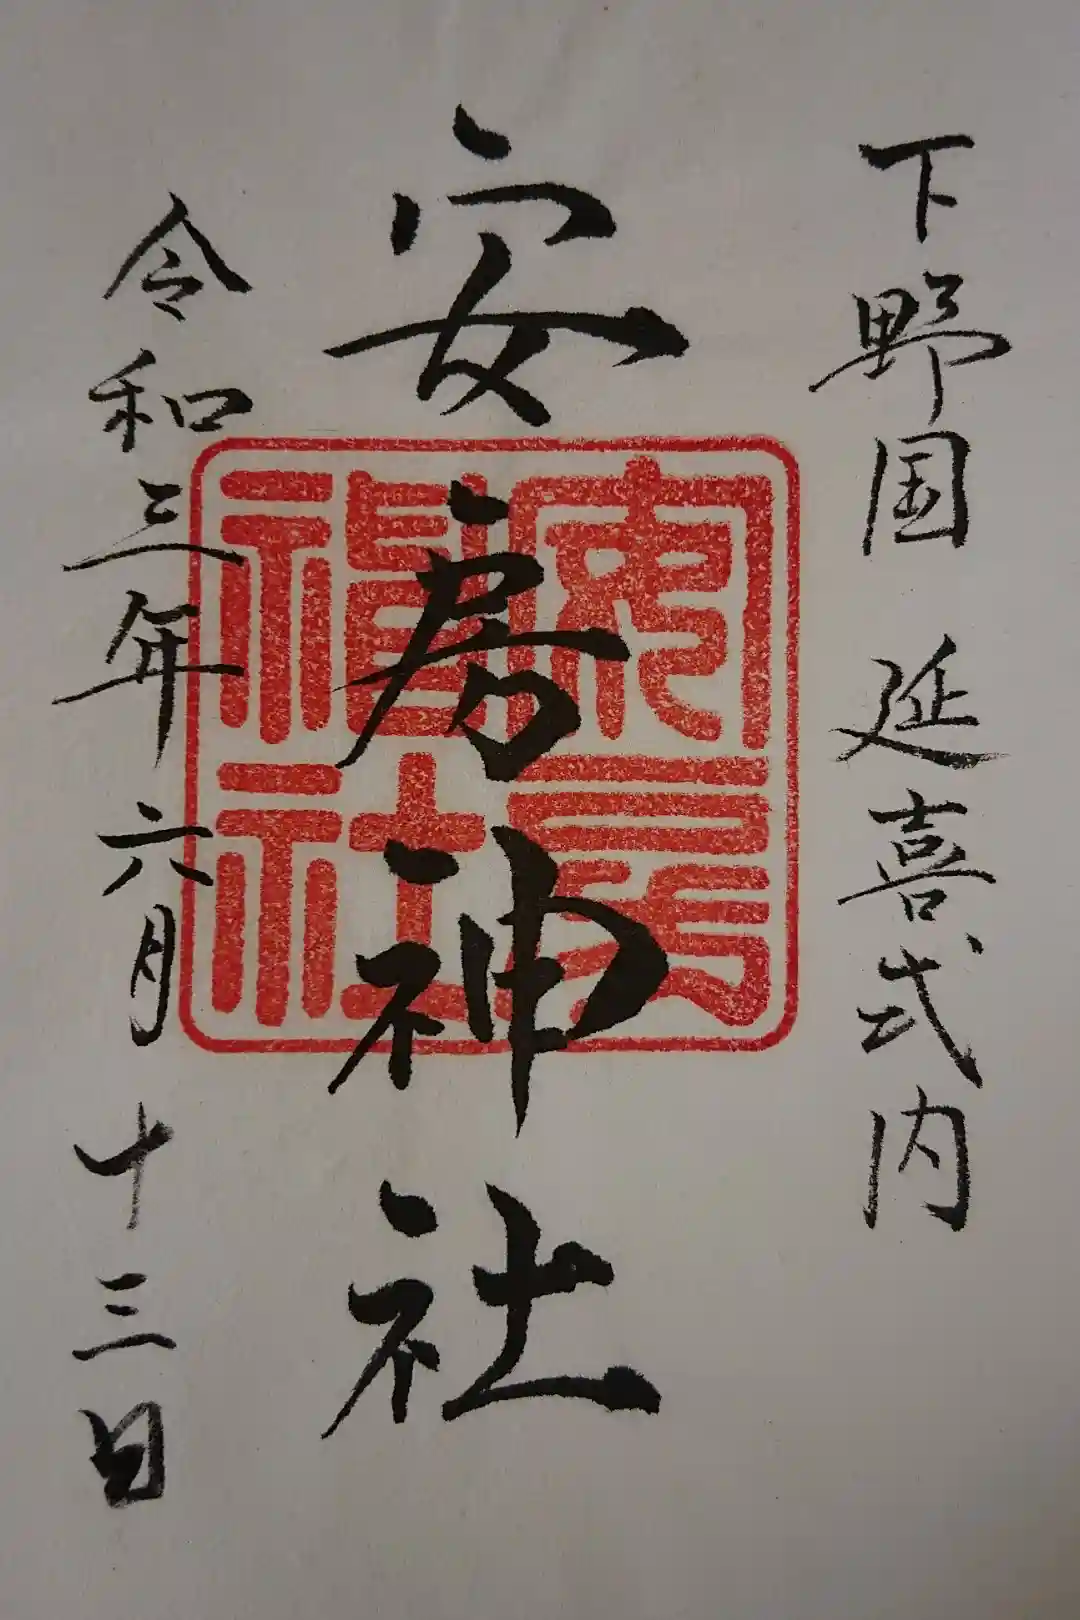 下野国 延喜式内
安房神社
安房
神社
令和三年六月十三日